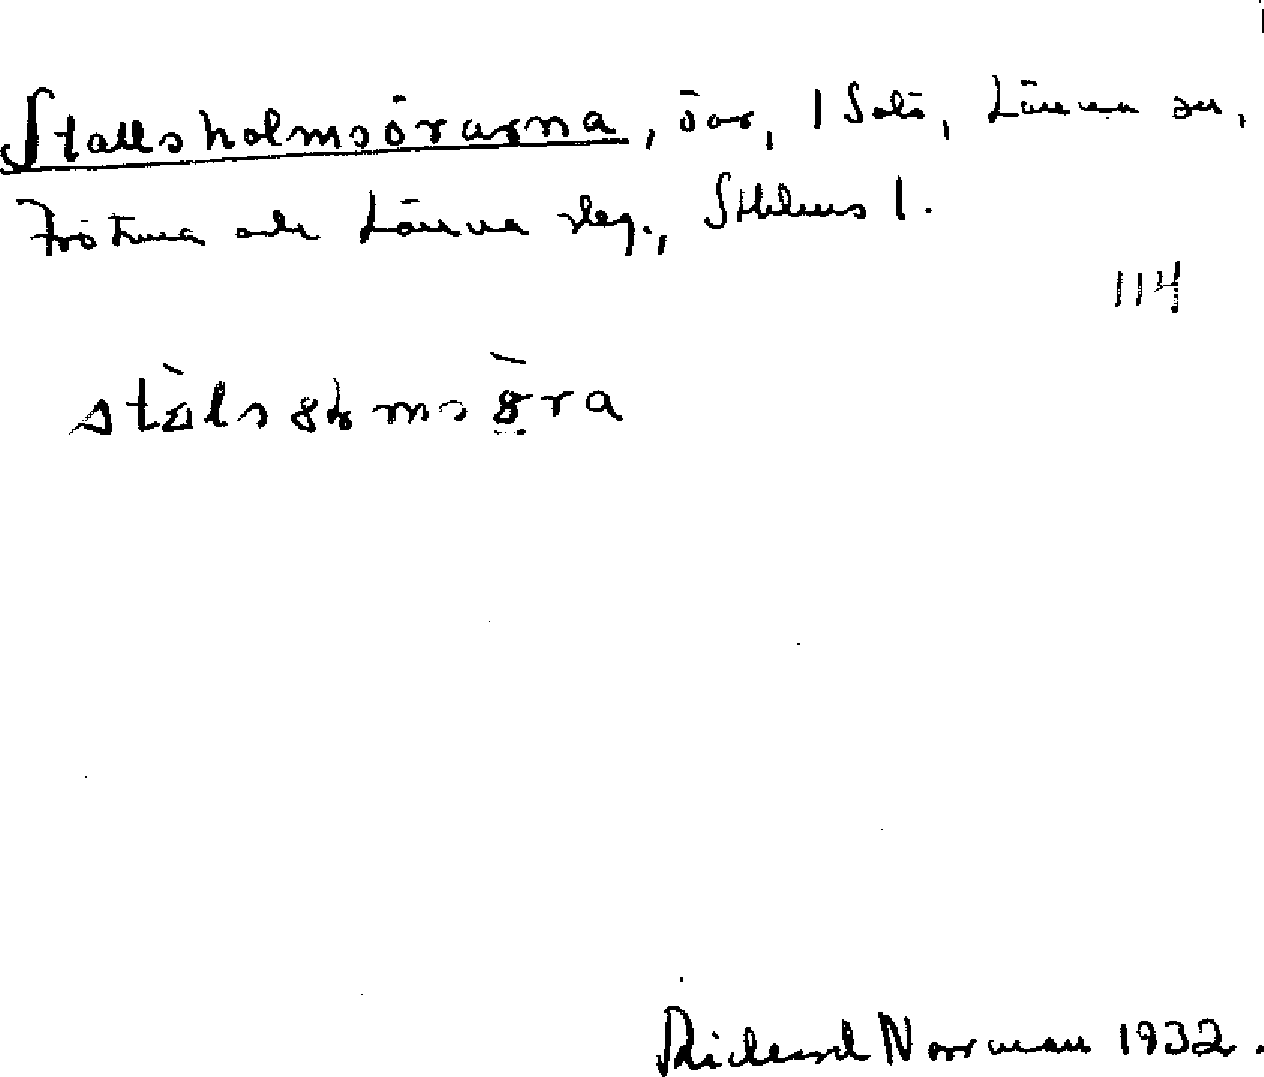 Stallsholmsörarna, öar, 1 Solö, Länna sn,
Frötuna och Länna skg., Sthlms l.
114
Richard Norrman 1932.